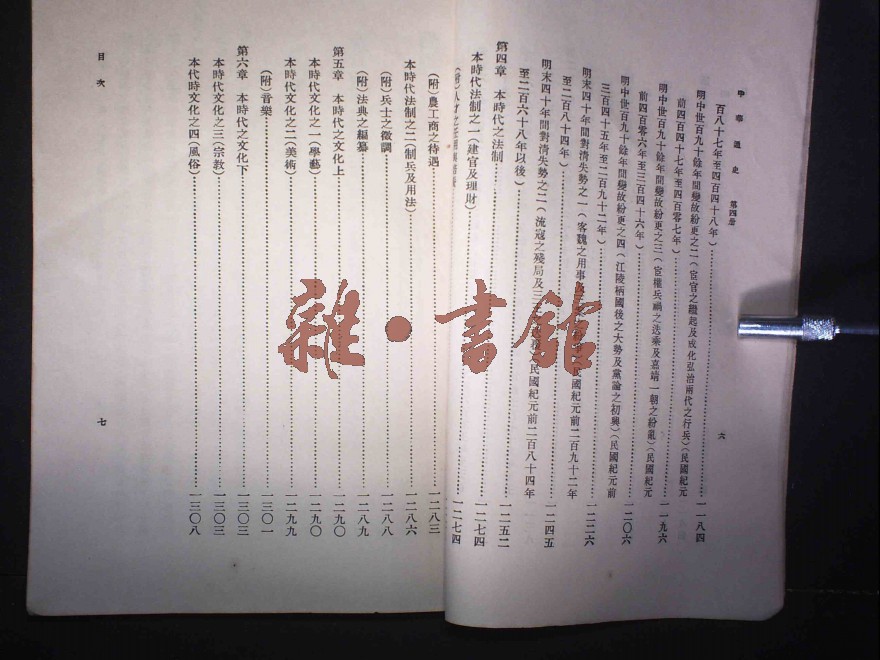 中華通史 第四册
六
百八十七年至四百四十八年)
明中世百九十餘年間變故紛更之二(宦官之繼起及成化弘治兩代之行兵)(民國紀元
前四百四十七年至四百零七年) 一一八四
明中世百九十餘年間變故紛更之三(宦權兵禍之迭乘及嘉靖一朝之紛亂)(民國紀元
前四百零六年至三百四十六年) 一一九六
明中世百九十餘年間變故紛更之四(江陵柄國後之大勢及黨論之初興)(民國紀元前
三百四十五年至二百九十二年) 一二〇六
明末四十年間對清失勢之一(客魏之用事 民國紀元前二百九十二年
至二百八十四年) 一二二六
明末四十年間對清失勢之二(流寇之殘局及三 民國紀元前二百八十四年
至二百六十八年以後) 一二四五
第四章 本時代之法制 一二五二
本時代法制之一(建官及理財) 一二七四
一二七四
(附)農工商之待遇 一二八三
本時代法制之二(制兵及用法) 一二八六
(附)兵士之徵調 一二八八
(附)法典之編纂 一二八九
第五章 本時代之文化上 一二九〇
本時代文化之一(學藝) 一二九〇
本時代文化之二(美術) 一二九九
(附)音樂 一三〇一
第六章 本時代之文化下 一三〇三
本時代文化之三(宗教) 一三〇三
本代時文化之四(風俗) 一三〇八
目次
七
雜·書館